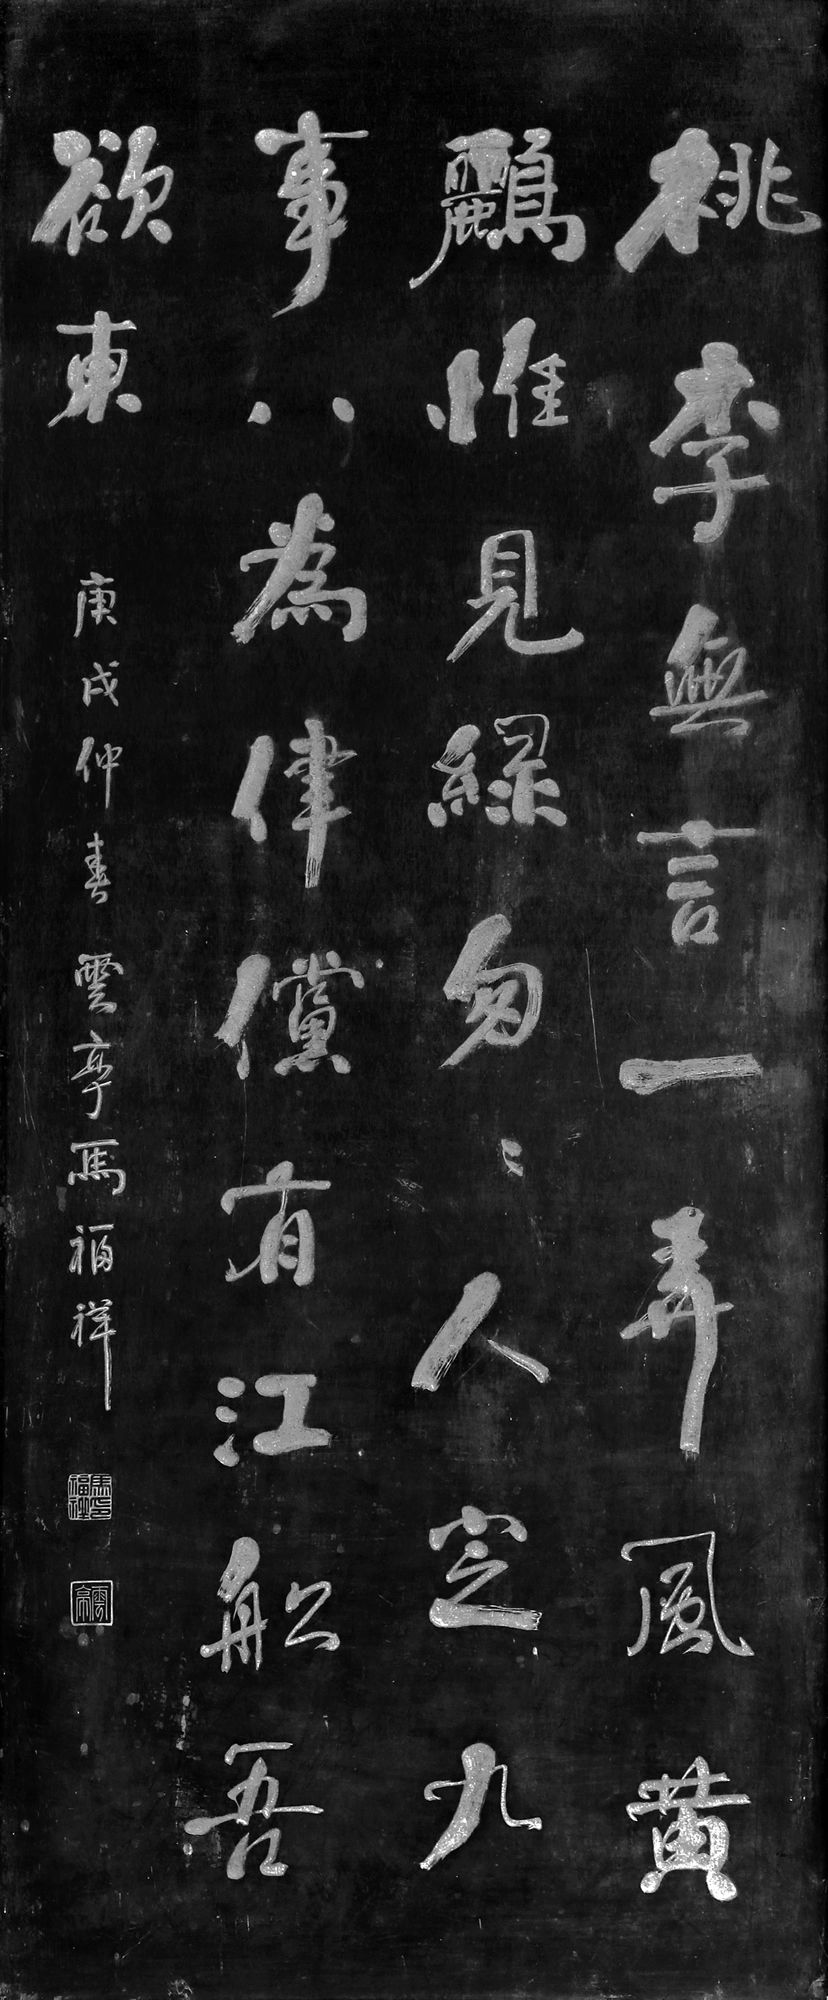 桃李無言一再風黃
鸝惟見綠匆〻人定九
事八為律儻有江船吾
欲東
庚戌仲春雲亭馬福祥
馬福祥印
雲亭